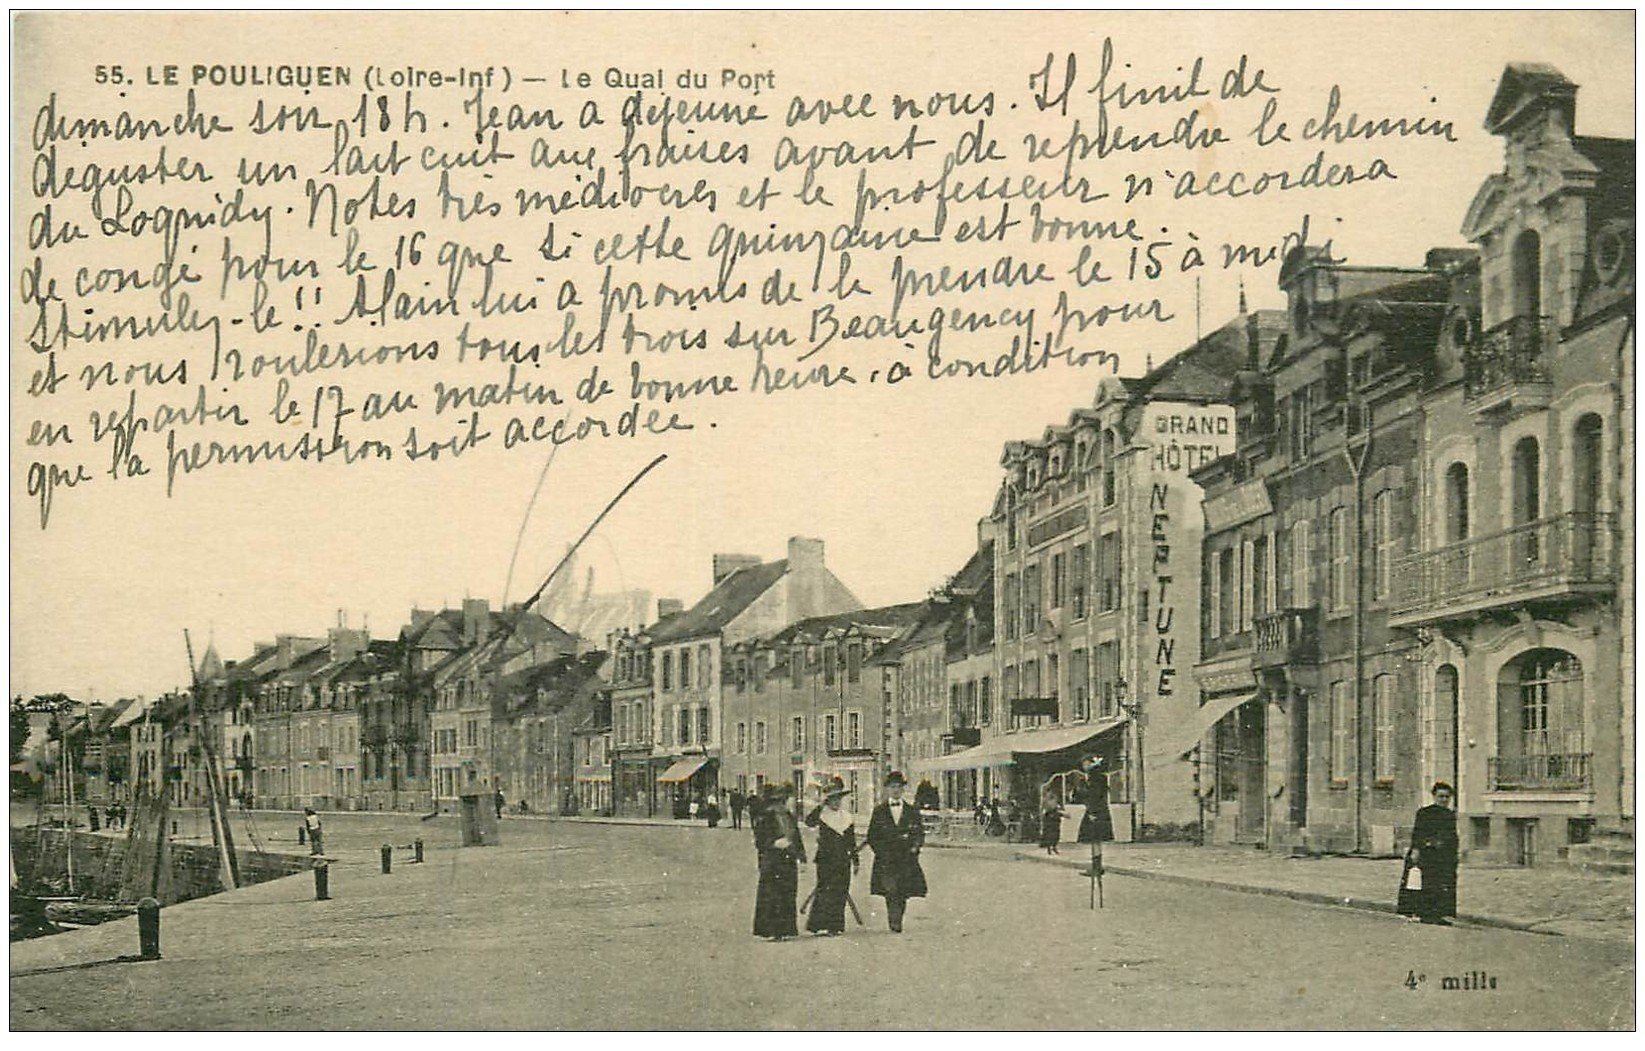 55. LE POULIGUEN (Loire-Inf) — Le Quai du Port
dimanche soir 18 h. Jean a déjeuné avec nous. Il finit de
déguster un lait cuit aux fraises avant de reprendre le chemin
du Loquidy. Notes très médiocres et le professeur n'accordera
de congé pour le 16 que si cette quinzaine est bonne.
Stimulez-le!! Alain lui a promis de le prendre le 15 à midi
et nous roulerions tous les trois sur Beaugency pour
en repartir le 17 au matin de bonne heure, à condition
que la permission soit accordée.
GRAND
HÔTEL
NEPTUNE
4e mille